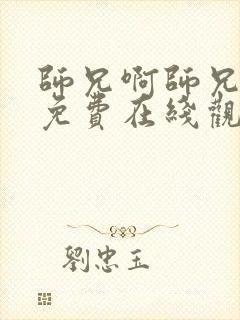 師兄啊師兄
免費在綫觀
劉忠玉